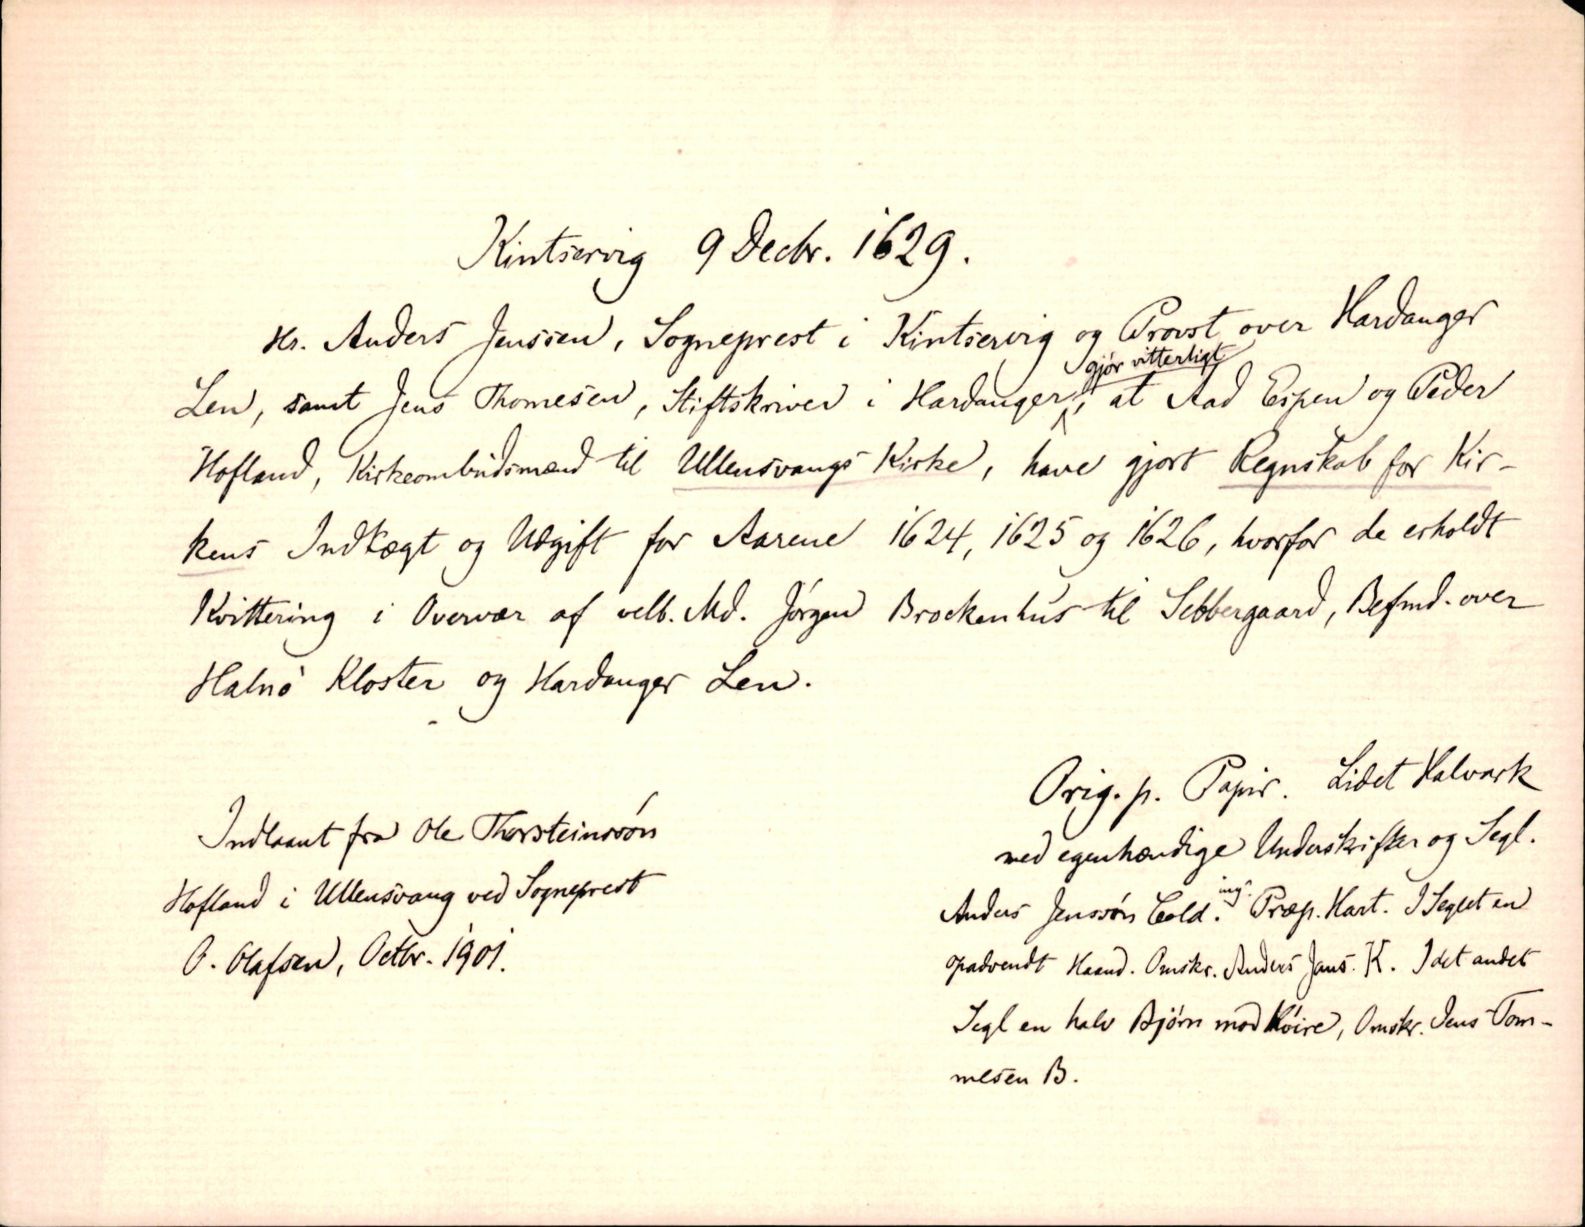 Kintservig 9 Decbr. 1629.
Hr. Anders Jenssen, Sogneprest i Kintservig og Provst over Hardanger
gjör vitterligt
Len, samt Jens Thomesen, Stiftskriver i Hardanger, at Aad Espen og Peder
Hofland, Kirkeombudsmænd til Ullensvangs Kirke, have gjort Regnskab for Kir-
kens Indtægt og Udgift for Aarene 1624, 1625 og 1626, hvorfor de erholdt
Kvittering i Overvær af velb. Md. Jörgen Brockenhus til Sebbergaard, Befmd. over
Halnö Kloster og Hardanger Len.
Orig. p. Papir. Lidet Halvark
med egenhændige Underskrifter og Segl.
ing.
Anders Jenssön Cold. Præp. Hart. I Seglet en
opadvendt Haand. Omskr. Anders Jans. K. I det andet
Segl en halv Björn mod Höire, Omskr. Jens Tom-
mesen B.
Indlaant fra Ole Thorsteinssön
Hofland i Ullensvang ved Sogneprest
O. Olafsen, Octbr. 1901.